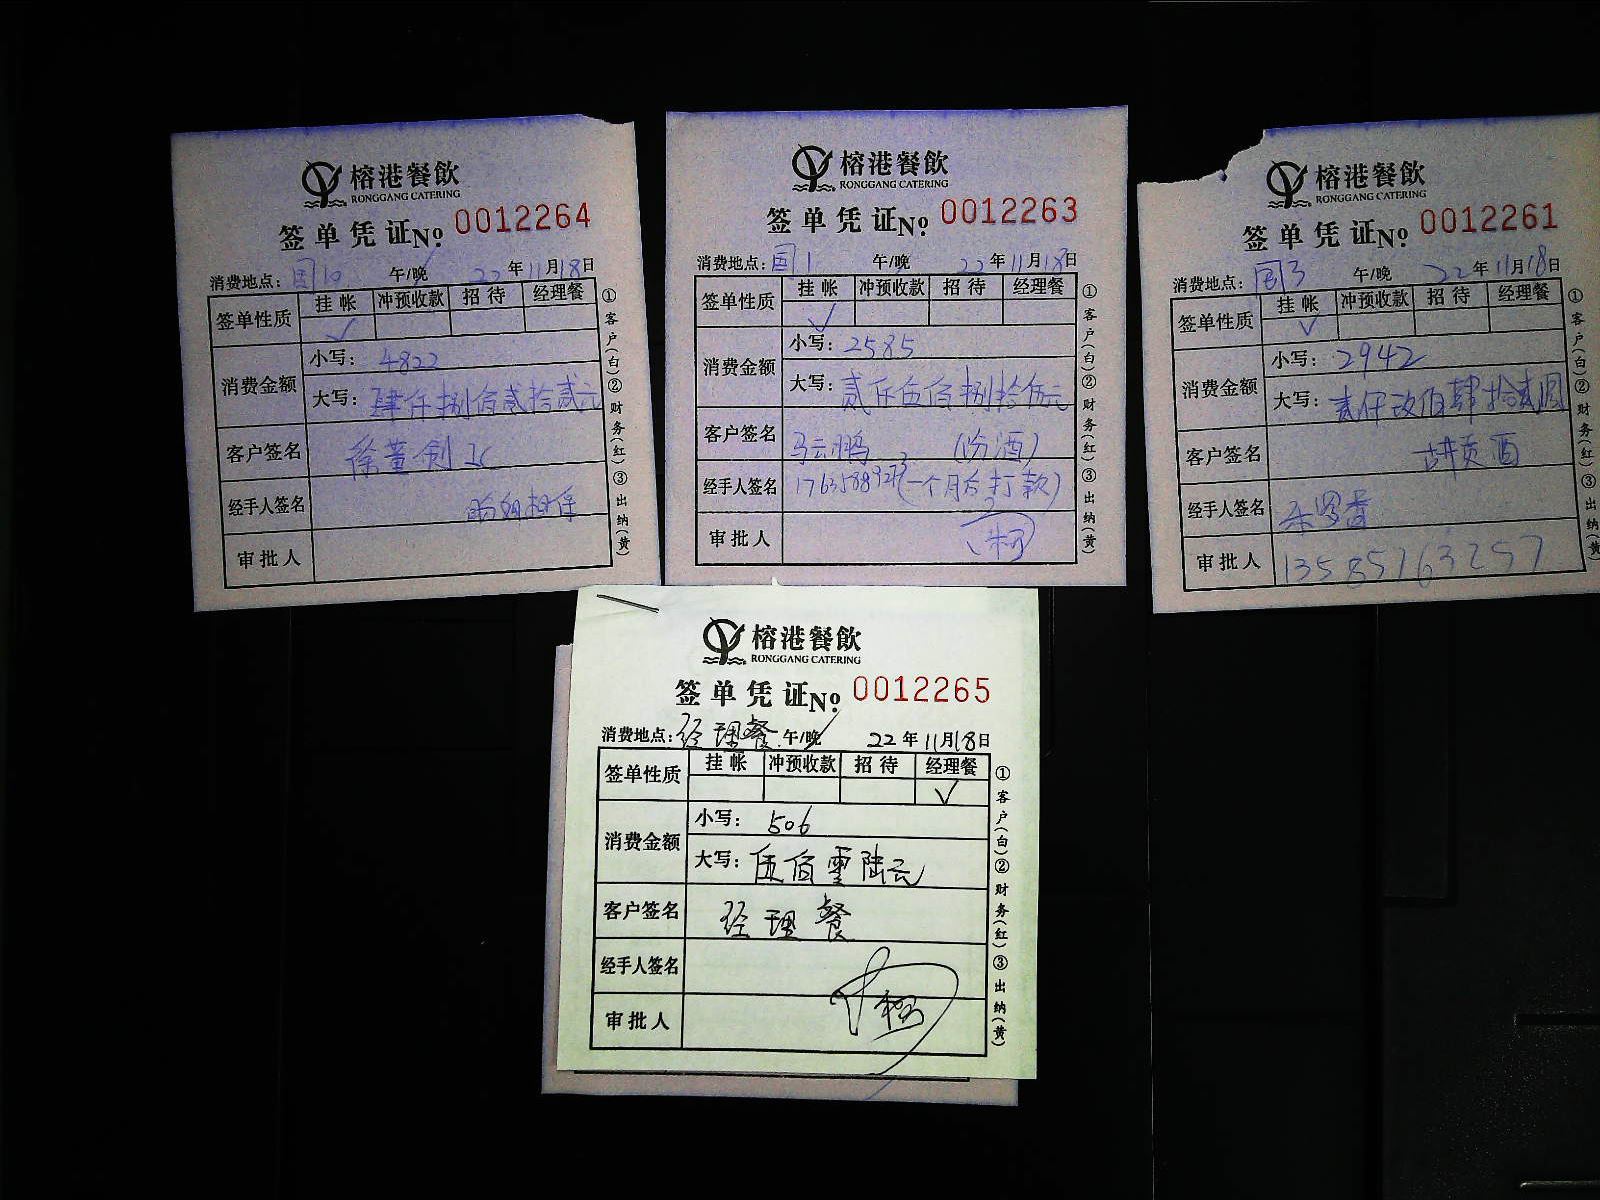 榕港餐飲
RONGGANG CATERING
签单凭证No. 0012264
消费地点：国10 午/晚 22年11月18日
签单性质 挂帐 冲预收款 招待 经理餐
✓
消费金额 小写：4822
大写：肆仟捌佰贰拾贰元
客户签名 徐董
经手人签名
审批人
①客户(白)②财务(红)③出纳(黄)
榕港餐飲
RONGGANG CATERING
签单凭证No. 0012263
消费地点：国1 午/晚 22年11月18日
签单性质 挂帐 冲预收款 招待 经理餐
✓
消费金额 小写：2585
大写：贰仟伍佰捌拾伍元
客户签名 马云鹏 (汾酒)
经手人签名 (一个月后打款)
审批人 柯
①客户(白)②财务(红)③出纳(黄)
榕港餐飲
RONGGANG CATERING
签单凭证No. 0012261
消费地点：国3 午/晚 22年11月18日
签单性质 挂帐 冲预收款 招待 经理餐
✓
消费金额 小写：2942
大写：贰仟玖佰肆拾贰圆
客户签名 古井贡酒
经手人签名
审批人 13585763257
①客户(白)②财务(红)③出纳(黄)
榕港餐飲
RONGGANG CATERING
签单凭证No. 0012265
消费地点：经理餐 午/晚 22年11月18日
签单性质 挂帐 冲预收款 招待 经理餐
✓
消费金额 小写：506
大写：伍佰零陆元
客户签名 经理餐
经手人签名
审批人 柯
①客户(白)②财务(红)③出纳(黄)